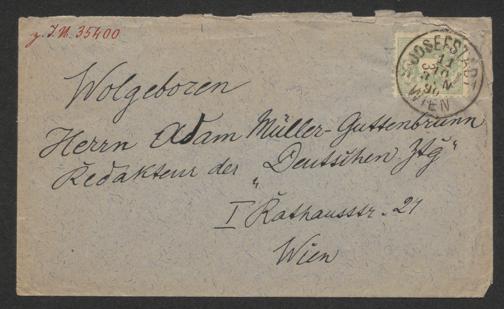 z. J.N. 35400
JOSEFSTADT
WIEN
Wolgeboren
Herrn Adam Müller-Guttenbrunn
Redakteur der „Deutschen Ztg"
I Rathausstr. 21
Wien